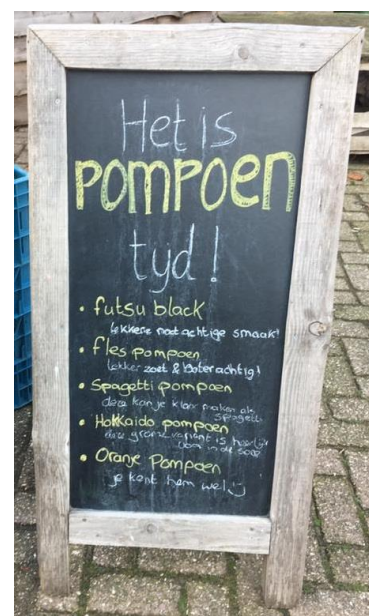 Het is
POMPOEN
tyd!
• futsu black
lekkere nootachtige smaak!
• fles pompoen
lekker zoet & boterachtig!
• Spagetti pompoen
deze kan je klaar maken als
spagetti
• Hokkaido pompoen
deze groene variant is heerlijk
voor in de soep
• Oranje Pompoen
je kent hem wel